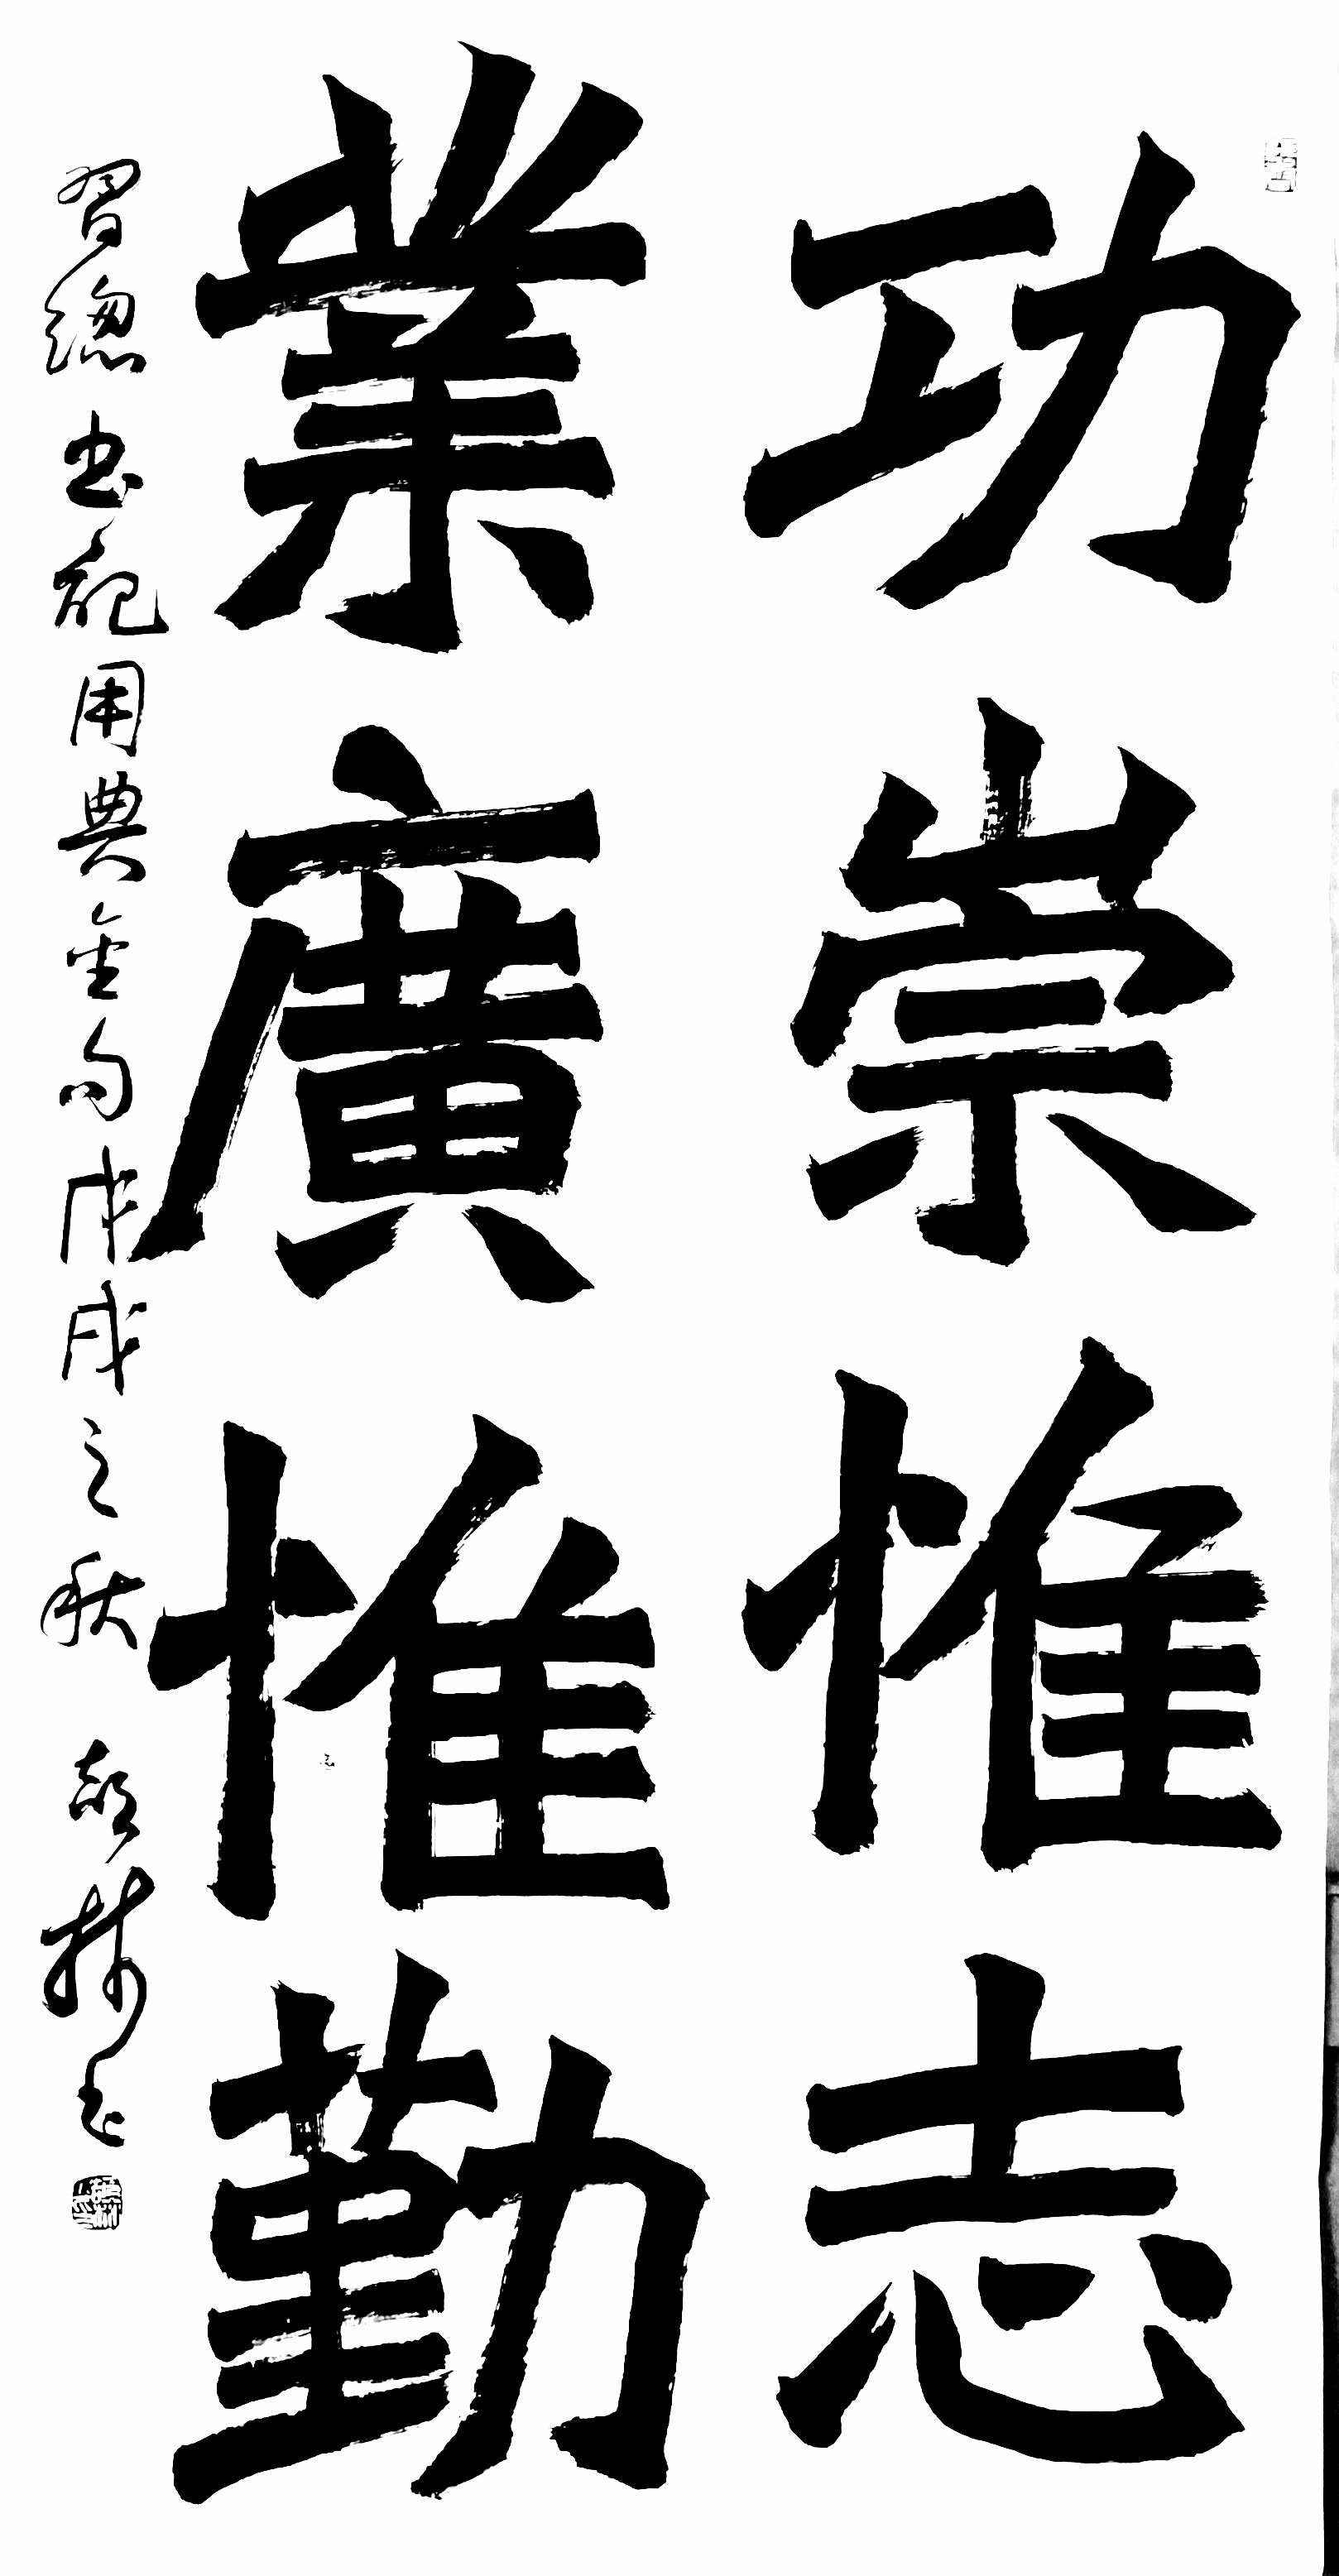 功崇惟志
業廣惟勤
習總書記用典金句戊戌之秋 林書